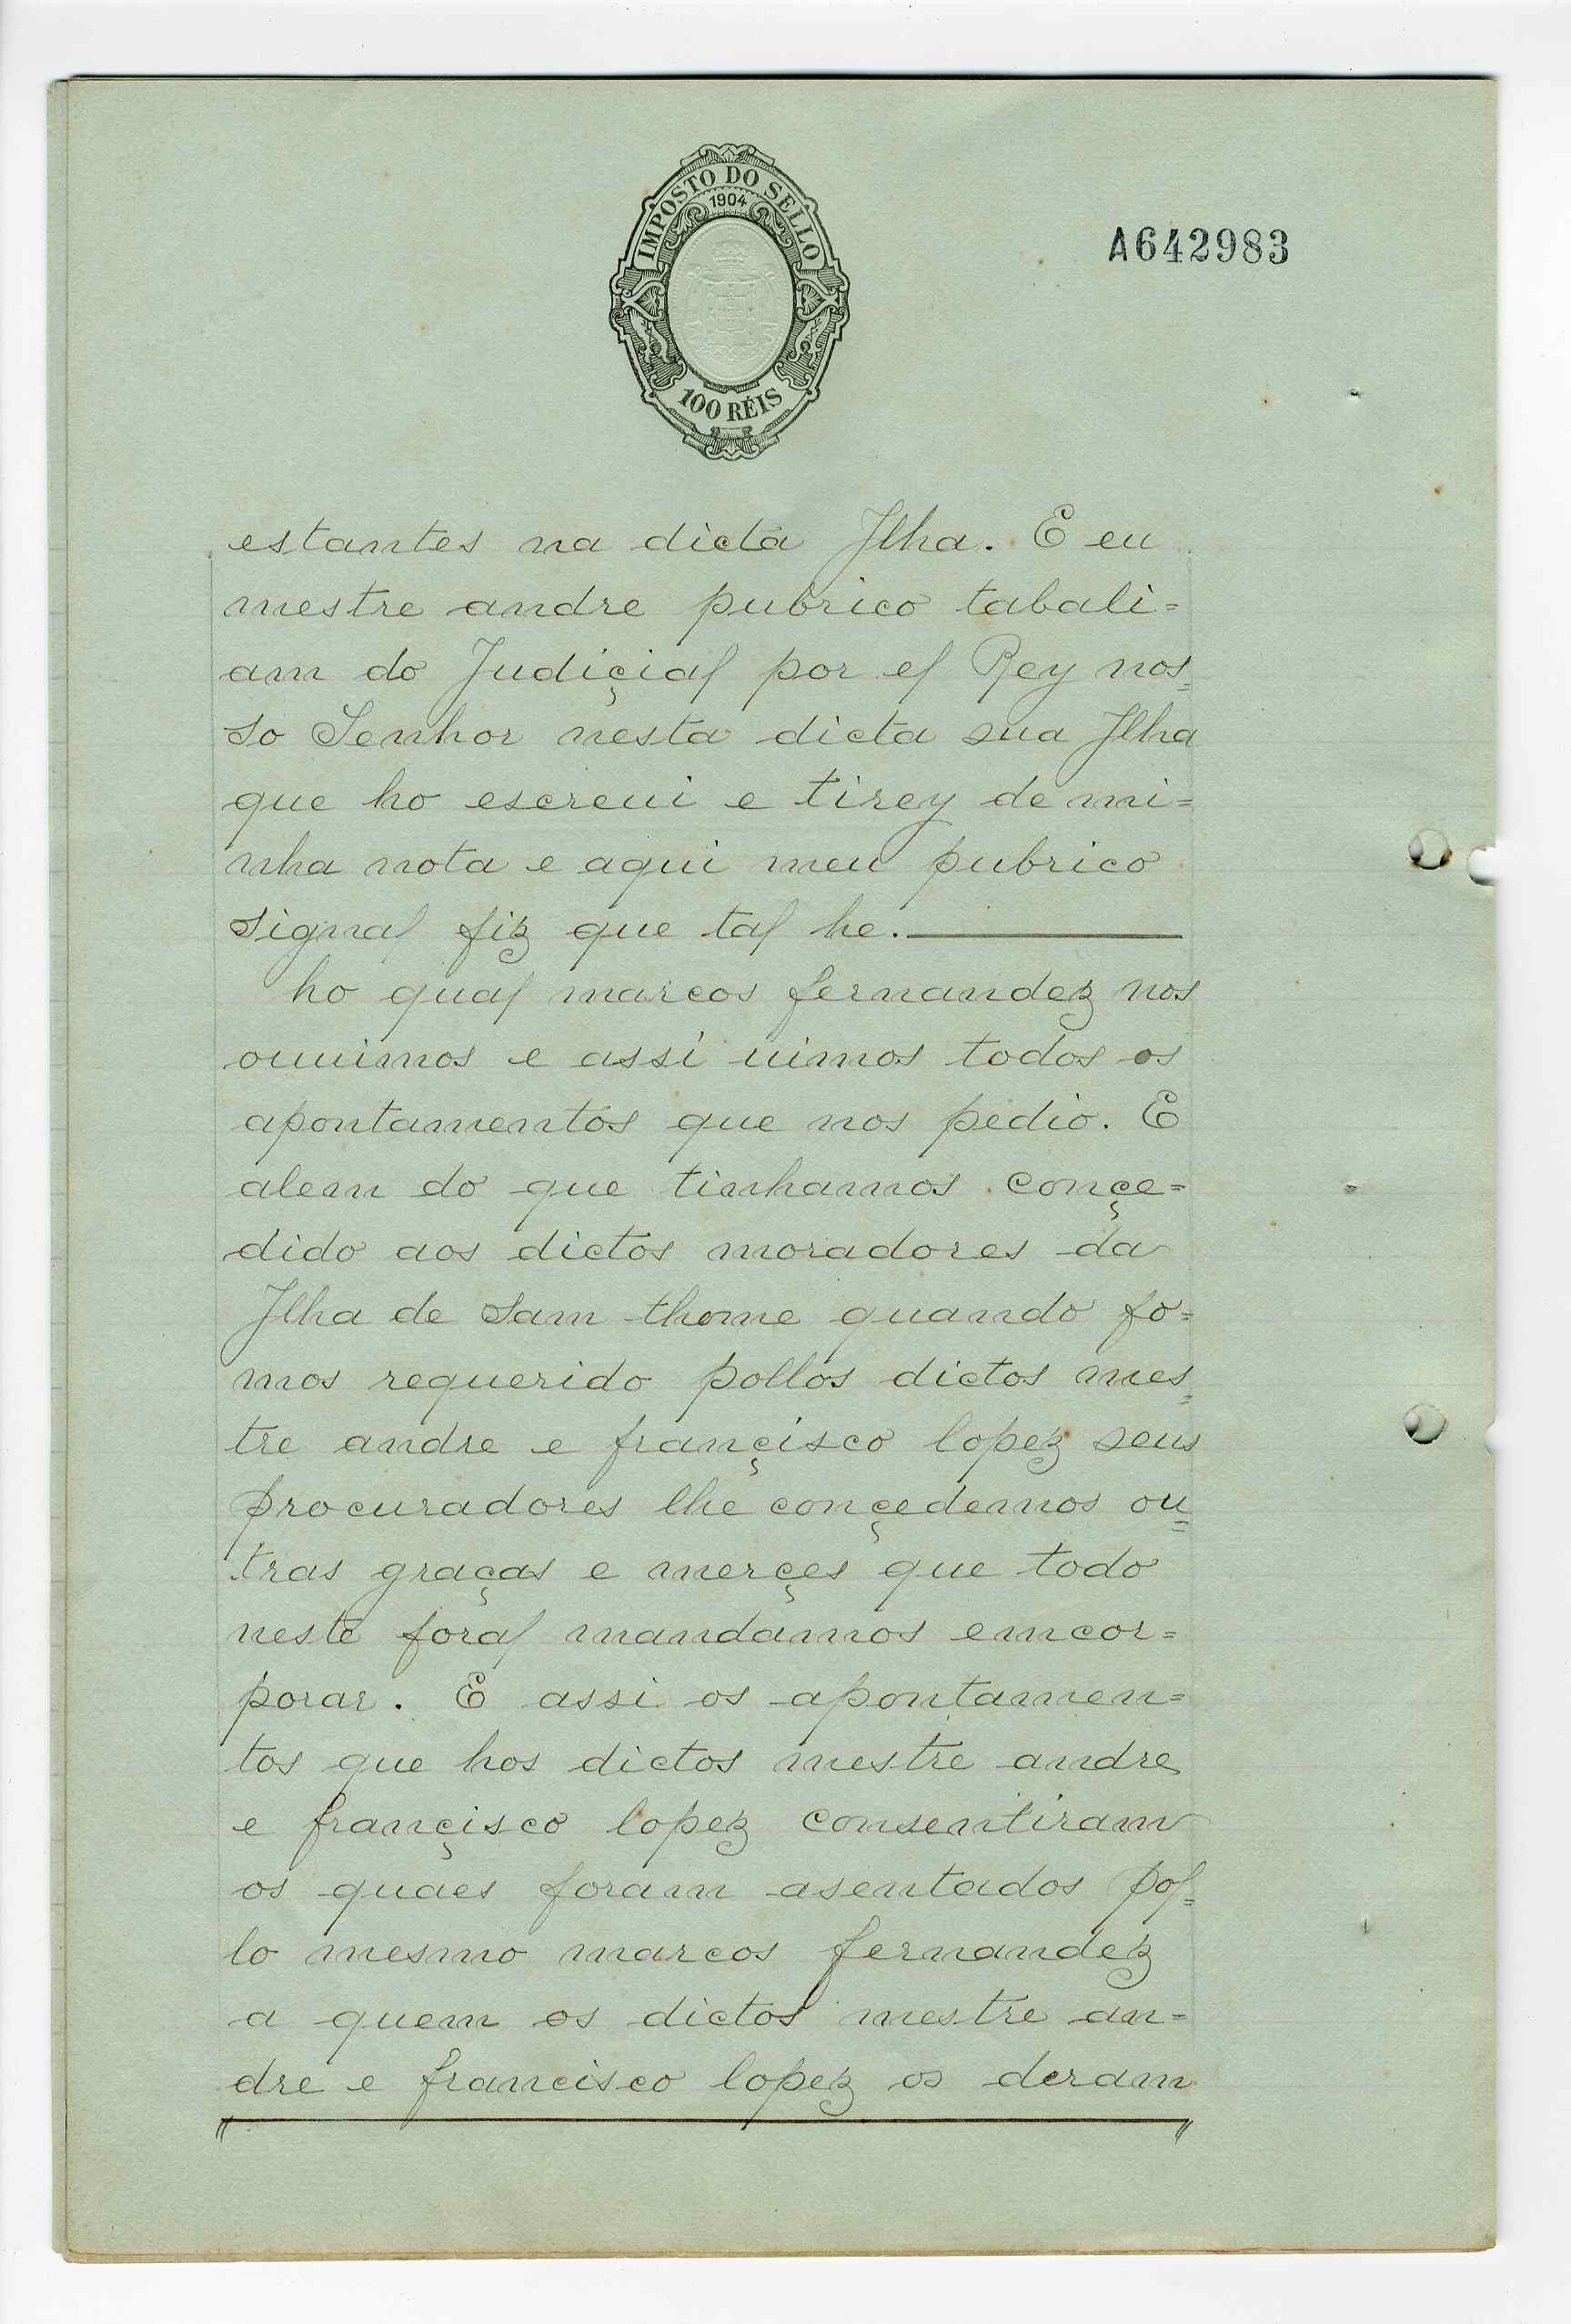 IMPOSTO DO SELLO
1904
100 RÉIS
A642983
estantes na dicta Jlha. E eu
mestre andre pubrico tabali=
am do Judiçial por el Rey nos=
so Senhor nesta dicta sua Jlha
que ho escreui e tirey de mi=
nha nota e aqui meu pubrico
signal fiz que tal he.
ho qual marcos fernandez nos
ouuimos e assi uimos todos os
apontamentos que nos pedio. E
alem do que tinhamos conçe=
dido aos dictos moradores da
Jlha de sam thome quando fo=
mos requerido pollos dictos mes=
tre andre e françisco lopez seus
procuradores lhe conçedemos ou=
tras graças e merçes que todo
neste foral mandamos emcor=
porar. E assi os apontamen=
tos que hos dictos mestre andre
e françisco lopez consentiram
os quaes foram asentados pol=
lo mesmo marcos fernandez
a quem os dictos mestre an=
dre e francisco lopez os deram